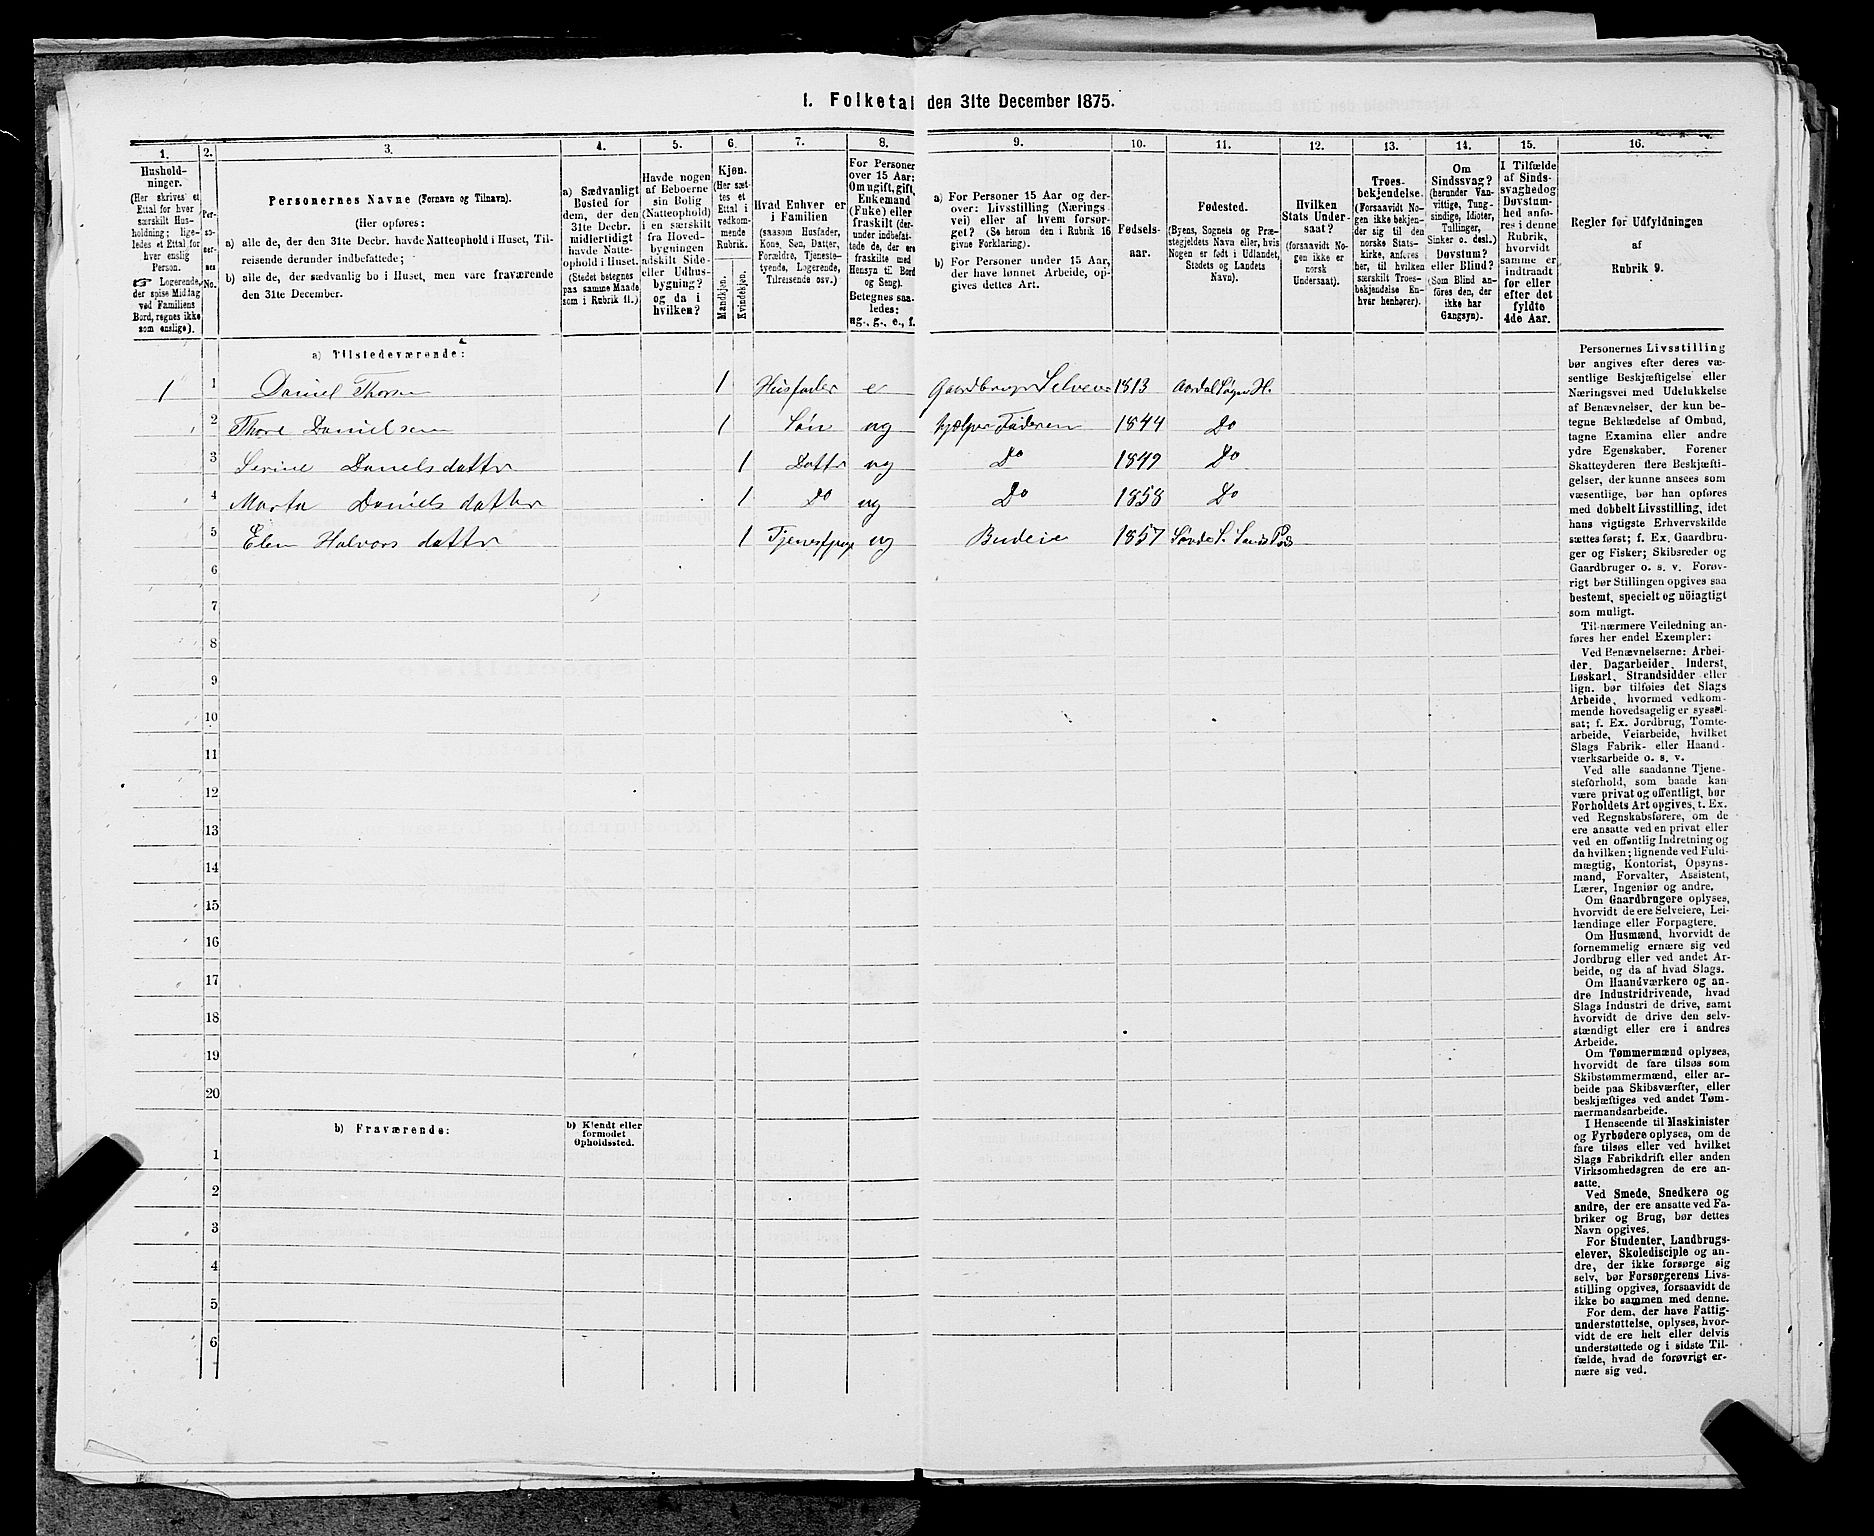 1. Folketal den 31te December 1875.
1.
2.
3.
4.
5.
6.
7.
8.
9.
10.
11.
12.
13.
14.
15.
16.
Hushold-
ninger.
(Her skrives et
Ettal for hver
særskilt Hus-
holdning; lige-
ledes et Ettal for
hver enslig
Person.
☞ Logerende,
der spise Middag
ved Familiens
Bord, regnes ikke
som enslige).
Per-
so-
ner-
nes
No.
Personernes Navne (Fornavn og Tilnavn).
(Her opføres:
a) alle de, der den 31te Decbr. havde Natteophold i Huset, Til-
reisende derunder indbefattede;
b) alle de, der sædvanlig bo i Huset, men vare fraværende
den 31te December.
a) Sædvanligt
Bosted for
dem, der den
31te Decbr.
midlertidigt
havde Natte-
ophold i Huset.
(Stedet betegnes
paa samme Maade
som i Rubrik 11.)
Havde nogen
af Beboerne
sin Bolig
(Natteophold)
i en særskilt
fra Hoved-
bygningen
adskilt Side-
eller Udhus-
bygning?
og da i
hvilken?
Kjøn.
(Her sæt-
tes et
Ettal i
vedkom-
mende
Rubrik.
Mandkjøn.
Kvindekjøn.
Hvad Enhver er
i Familien
(saasom Husfader,
Kone, Søn, Datter,
Forældre, Tjeneste-
tyende, Logerende,
Tilreisende osv.)
For Personer
over 15 Aar:
Om ugift, gift,
Enkemand
(Enke) eller
fraskilt (der-
under indbefat-
tede de, der ere
fraskilte med
Hensyn til Bord
og Seng).
Betegnes saa-
ledes:
ug., g., e., f.
a) For Personer 15 Aar og der-
over: Livsstilling (Nærings
vei) eller af hvem forsør-
get? (Se herom den i Rubrik 16
givne Forklaring).
b) For Personer under 15 Aar,
der have lønnet Arbeide, op-
gives dettes Art.
Fødsels-
aar.
Fødested.
(Byens, Sognets og Præ-
stegjeldets Navn eller, hvis
Nogen er født i Udlandet,
Stedets og Landets
Navn).
Hvilken
Stats Under-
saat?
(forsaavidt No-
gen ikke er
norsk
Undersaat).
Troes-
bekjendelse.
(Forsaavidt No-
gen ikke bekjen-
der sig til den
norske Stats-
kirke, anføres
her, til hvilken
særskilt Troes-
bekjendelse En-
hver henhører).
Om
Sindssvag?
(herunder Van-
vittige, Tung-
sindige, Idioter,
Tullinger,
Sinker o. desl.)
Døvstum?
eller Blind?
(Som Blind an-
føres den, der
ikke har
Gangsyn).
I Tilfælde
af Sinds-
svaghed og
Døvstum-
hed anfø-
res i denne
Rubrik,
hvorvidt
samme er
indtraadt
før eller
efter det
fyldte
4de Aar.
Regler for Udfyldningen
af
Rubrik 9.
a) Tilstedeværende:
1 1 Daniel Thorsen 1 Husfader e Gaardbruger Selveier 1813 Aardal Sogn H.
2 Thore Danielsen 1 Søn ug hjelper Faderen 1844 Do
3 Serine Danielsdatter 1 Datter ug Do 1849 Do
4 Marta Daniels datter 1 Do ug Do 1858 Do
5 Elen Halvors datter 1 ug Budeie 1857
6
7
8
9
10
11
12
13
14
15
16
17
18
19
20
b) Fraværende:
b) Kjendt eller
formodet
Opholdssted.
1
2
3
4
5
6
Personernes Livsstilling
bør angives efter deres væ-
sentlige Beskjæftigelse eller
Næringsvei med Udelukkelse
af Benævnelser, der kun be-
tegne Beklædelse af Ombud,
tagne Examina eller andre
ydre Egenskaber. Forener
Skatteyderen flere Beskjæfti-
gelser, der kunne ansees som
væsentlige, bør han opføres
med dobbelt Livsstilling, idet
hans vigtigste Erhvervskilde
sættes først; f. Ex. Gaardbru-
ger og Fisker; Skibsreder og
Gaardbruger o. s. v. Forøv-
rigt bør Stillingen opgives saa
bestemt, specielt og nöiagtigt
som muligt.
Til nærmere Veiledning an-
føres her endel Exempler:
Ved Benævnelserne: Arbei-
der, Dagarbeider, Inderst,
Løskarl, Strandsidder eller
lign. bør tilføies det Slags
Arbeide, hvormed vedkom-
mende hovedsagelig er syssel-
sat; f. Ex. Jordbrug, Tomte-
arbeide, Veiarbeide, hvilket
Slags Fabrik- eller Haand-
værksarbeide o. s. v.
Ved alle saadanne Tjene-
steforhold, som baade kan
være privat og offentligt, bør
Forholdets Art opgives, t. Ex.
ved Regnskabsførere, om de
ere ansatte ved en privat eller
ved en offentlig Indretning og
da hvilken; lignende ved Fuld-
mægtig, Kontorist, Opsyns-
mand, Forvalter, Assistent,
Lærer, Ingeniør og andre.
Om Gaardbrugere oplyses,
hvorvidt de ere Selveiere, Lei-
lændinge eller Forpagtere.
Om Husmænd, hvorvidt de
fornemmelig ernære sig ved
Jordbrug eller ved andet Ar-
beide, og da af hvad Slags.
Om Haandværkere og an-
dre Industridrivende, hvad
Slags Industri de drive, samt
hvorvidt de drive den selv-
stændigt eller ere i andres
Arbeide.
Om Tømmermænd oplyses,
hvorvidt de fare tilsøs som
Skibstømmermænd, eller ar-
beide paa Skibsværfter, eller
beskjæftiges ved andet Tøm-
mermandsarbeide.
I Henseende til Maskinister
og Fyrbødere oplyses, om de
fare tilsøs eller ved hvilket
Slags Fabrikdrift eller anden
Virksomhedsgren de ere an-
satte.
Ved Smede, Snedkere og
andre, der ere ansatte ved Fa-
briker og Brug, bør dettes
Navn opgives.
For Studenter, Landbrugs-
elever, Skoledisciple og an-
dre, der ikke forsørge sig
selv, bør Forsørgerens Livs-
stilling opgives, forsaavidt de
ikke bo sammen med denne.
For dem, der have Fattig-
understøttelse, oplyses, hvor-
vidt de ere helt eller delvis
understøttede og i sidste Til-
fælde, hvad de forøvrigt er-
nære sig ved.